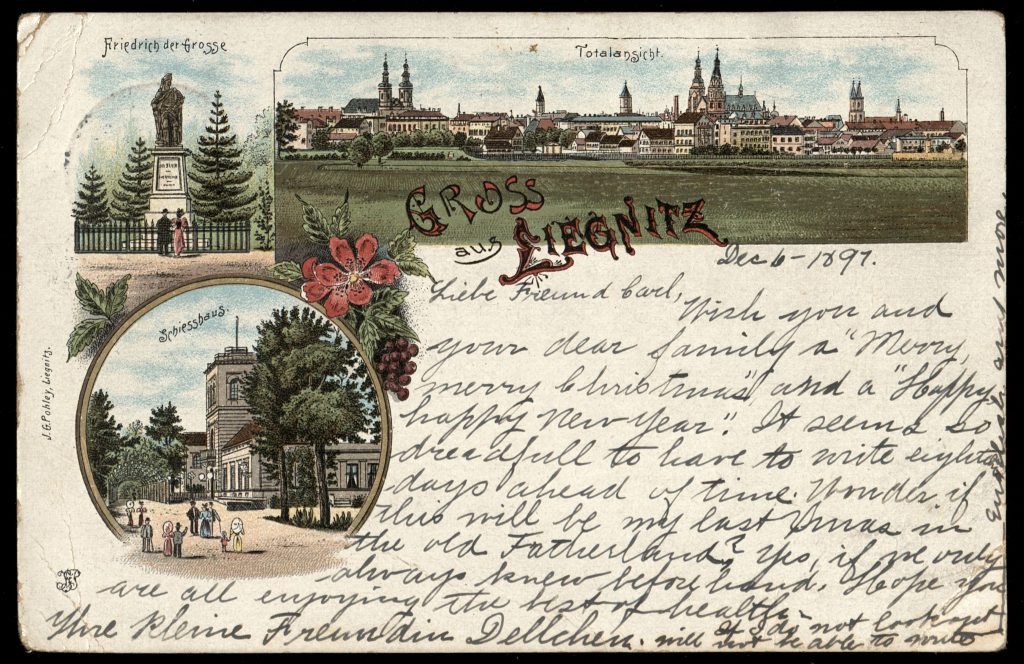 Friedrich der Grosse
Totalansicht.
GROSS
aus LIEGNITZ
Schiesshaus.
J.G. Pohley, Liegnitz.
Dec 6-1897.
Liebe Freund Carl,
Wish you and
your dear family a "Merry,
merry Christmas" and a "Happy,
happy New Year". It seems so
dreadfull to have to write eighteen
days ahead of time. Wonder if
this will be my last Xmas in
the old Fatherland? Yes, if we only
always knew beforehand. Hope you
are all enjoying the best of health.
Ihre kleine Freundin Dellchen.
If I do not look out
will not be able to write
english any more